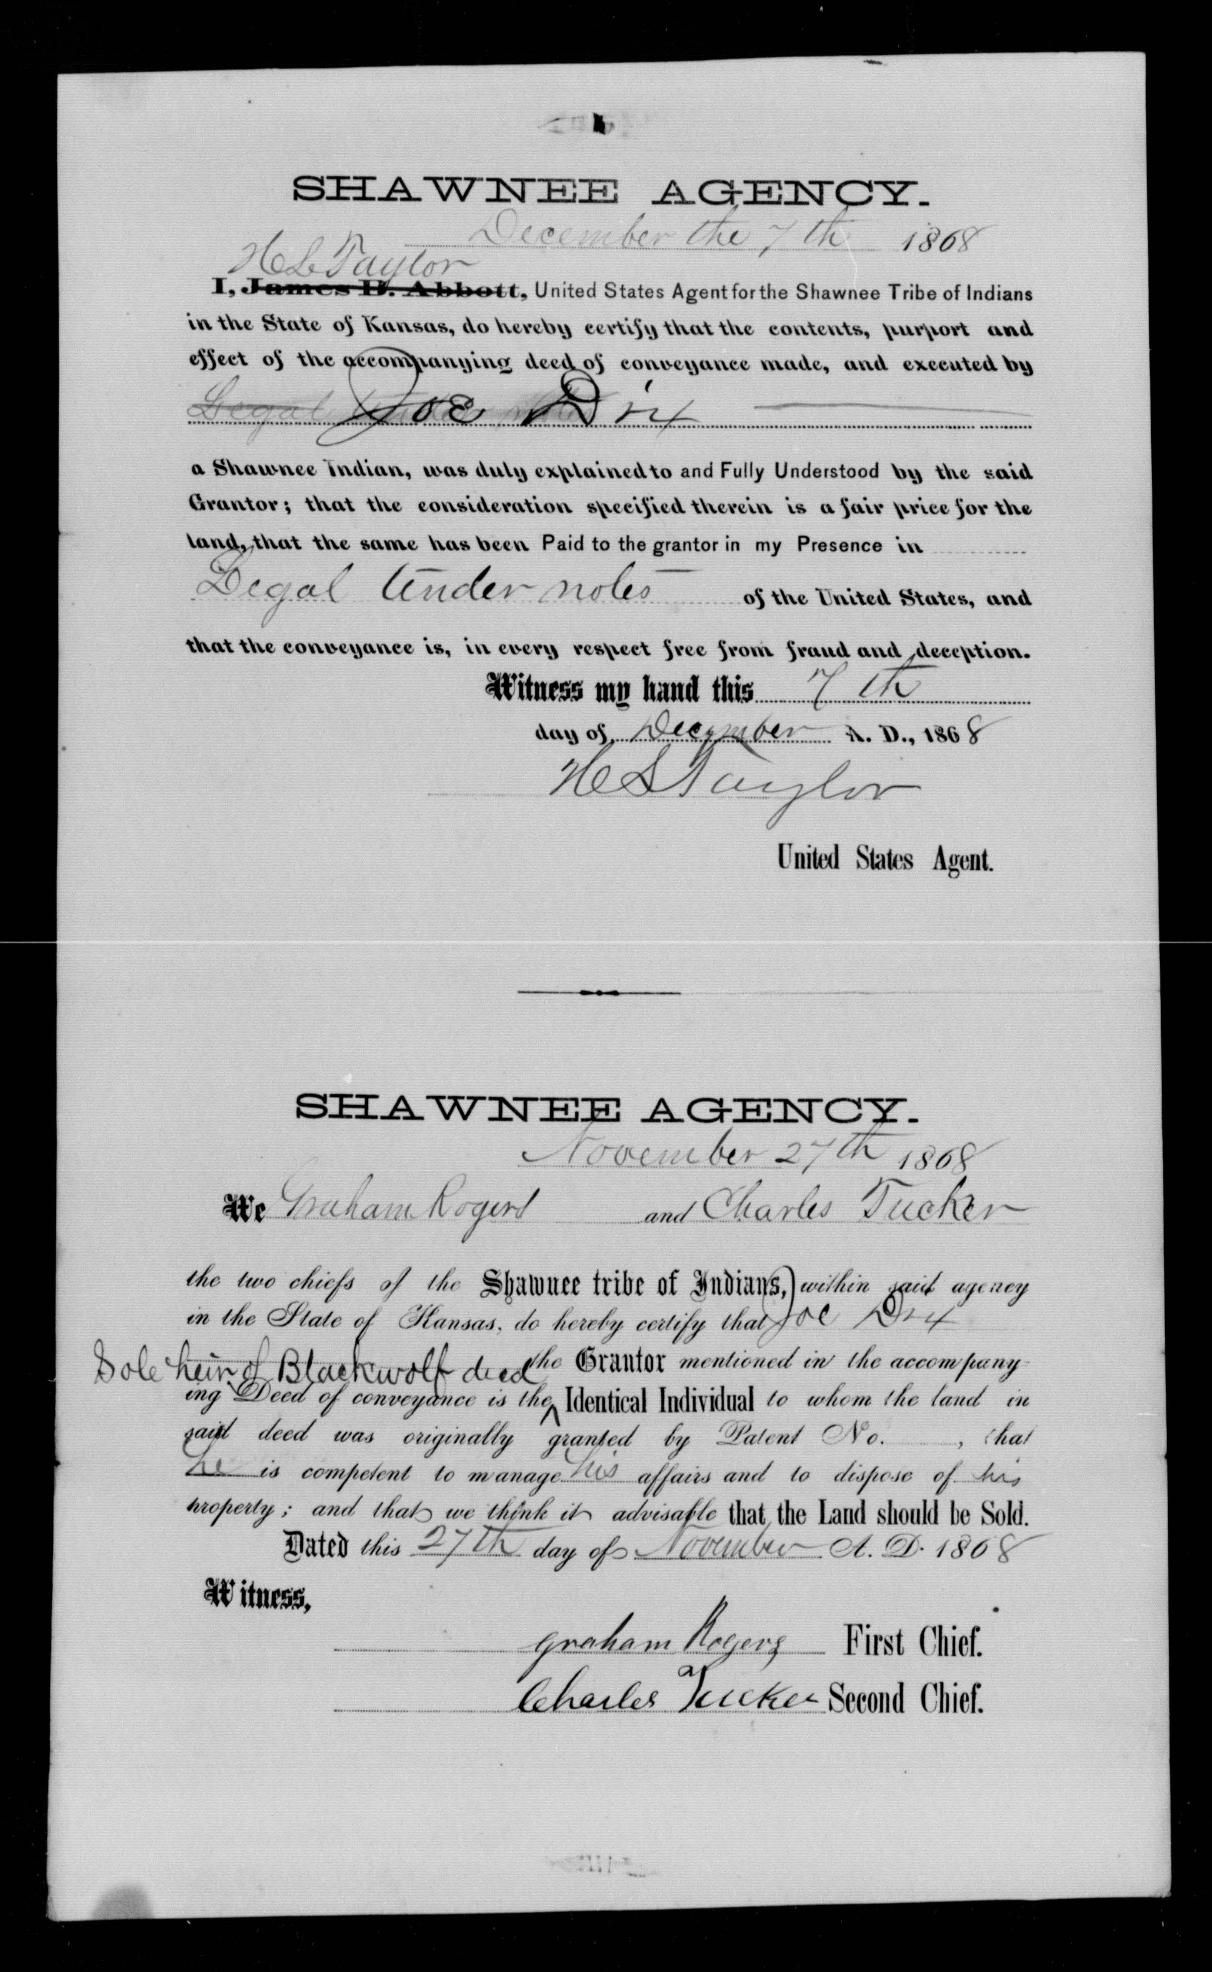 SHAWNEE AGENCY.
December the 7th 1868
H L Taylor
I, James B. Abbott, United States Agent for the Shawnee Tribe of Indians
in the State of Kansas, do hereby certify that the contents, purport and
effect of the accompanying deed of conveyance made, and executed by
Legal Joe Dix
a Shawnee Indian, was duly explained to and Fully Understood by the said
Grantor; that the consideration specified therein is a fair price for the
land, that the same has been Paid to the grantor in my Presence in
Legal tender notes of the United States, and
that the conveyance is, in every respect free from fraud and deception.
Witness my hand this 7th
day of December A. D., 1868
H L Taylor
United States Agent.
SHAWNEE AGENCY.
November 27th 1868
We Graham Rogers and Charles Tucker
the two chiefs of the Shawnee tribe of Indians, within said agency
in the State of Kansas, do hereby certify that Joe Dix
the Grantor mentioned in the accompany-
Sole heir of Blackwolf decd
ing Deed of conveyance is the Identical Individual to whom the land in
said deed was originally granted by Patent No. , that
he is competent to manage his affairs and to dispose of his
property; and that we think it advisable that the Land should be Sold.
Dated this 27th day of November A. D. 1868
Witness,
Graham Rogers First Chief.
Charles Tucker Second Chief.